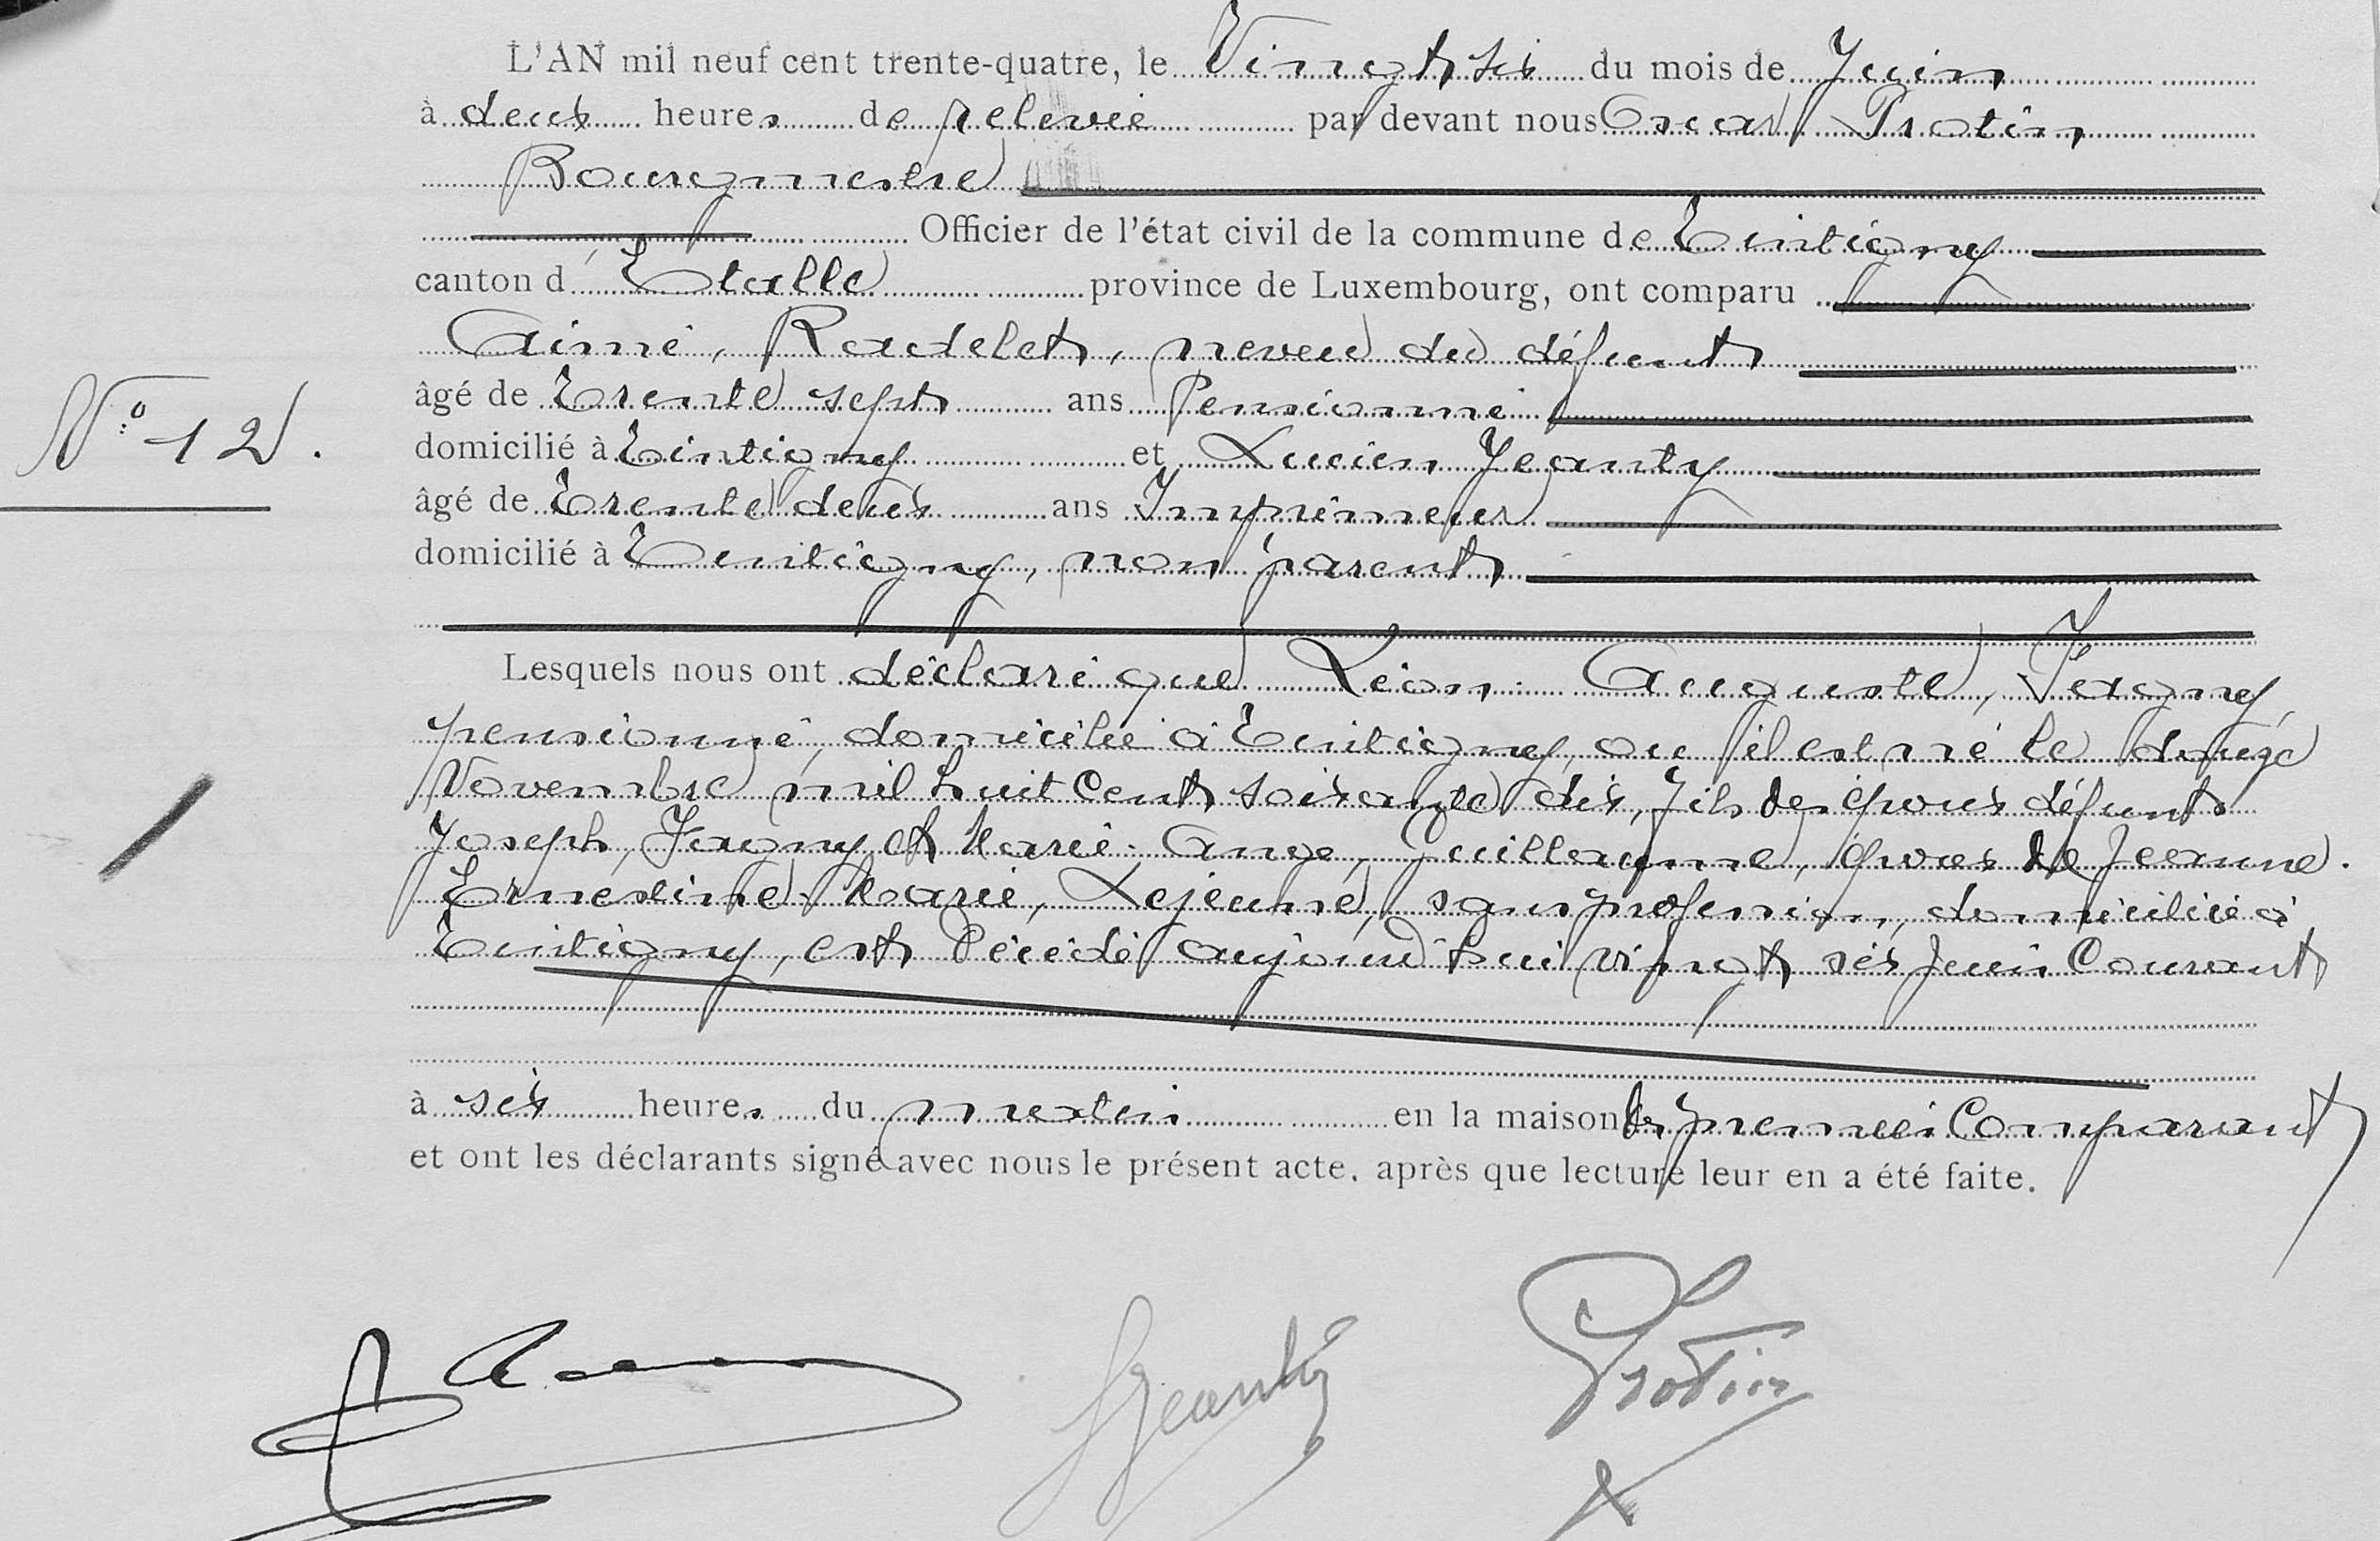 L'AN mil neuf cent trente-quatre, le Vingt six du mois de Juin
à deux heures de relevée par devant nous Oscar Protin
Bourgmestre
Officier de l'état civil de la commune de Tintigny
canton d'Etalle province de Luxembourg, ont comparu
Aimé, Radelet, neveu du défunt
âgé de Trente sept ans Pensionné
N° 12.
domicilié à Tintigny et Lucien Jeanty
âgé de Trente deux ans Imprimeur
domicilié à Tintigny, non parent
Lesquels nous ont déclaré que Léon Auguste,
pensionné, domicilié à Tintigny, où il est né le douze
Novembre mil huit cent soixante dix, fils des époux défunts
Joseph, et Marie-Ange, Guillaume, époux de Jeanne-
Ernestine-Marie, Lejeune, sans profession, domiciliée à
Tintigny, est décédé aujourd'hui vingt six Juin Courant
à six heures du matin en la maison du premier Comparant
et ont les déclarants signé avec nous le présent acte, après que lecture leur en a été faite.
Jeanty Protin